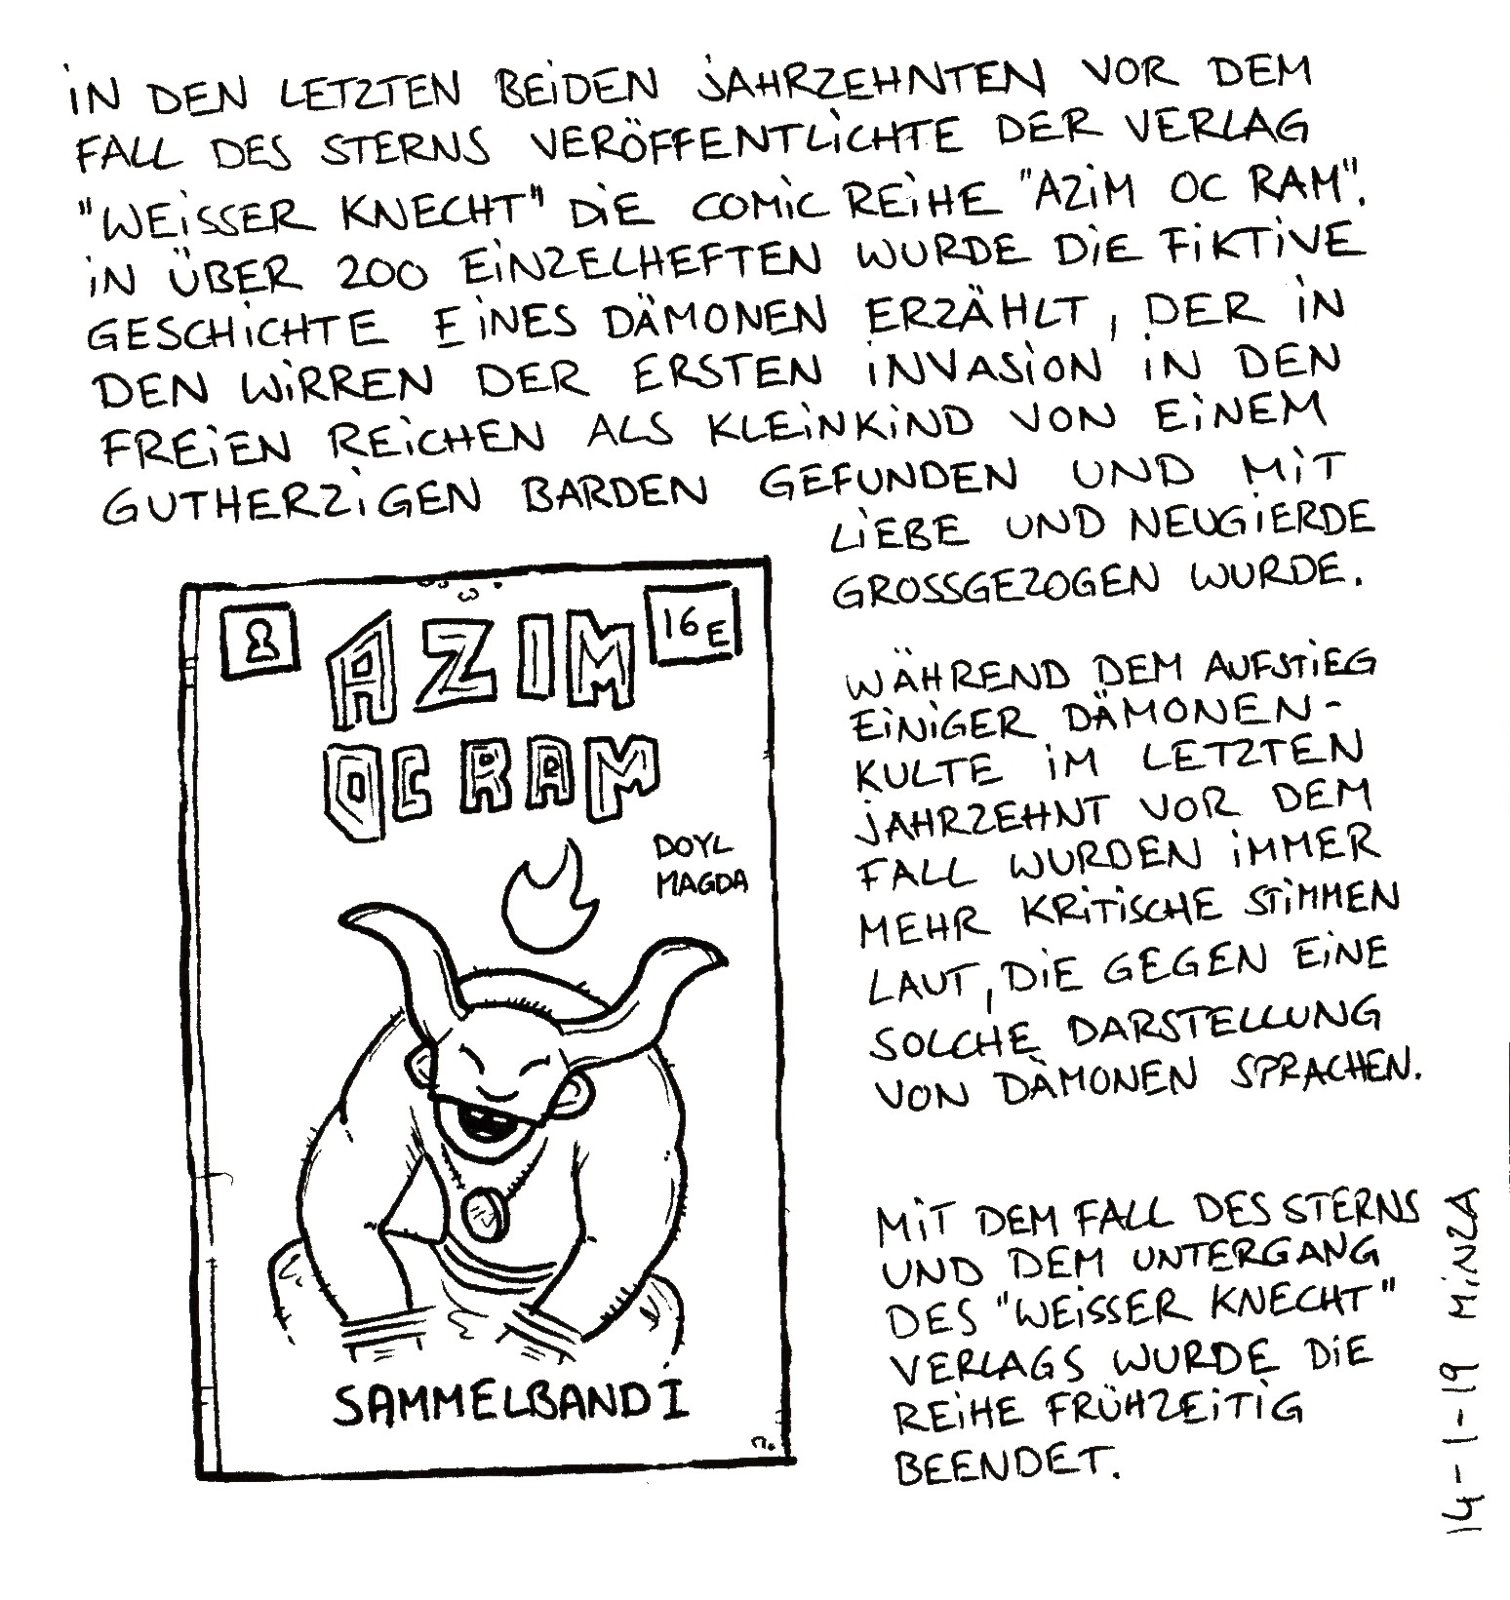 IN DEN LETZTEN BEIDEN JAHRZEHNTEN VOR DEM
FALL DES STERNS VERÖFFENTLICHTE DER VERLAG
"WEISSER KNECHT" DIE COMIC REIHE "AZIM OC RAM".
IN ÜBER 200 EINZELHEFTEN WURDE DIE FIKTIVE
GESCHICHTE EINES DÄMONEN ERZÄHLT, DER IN
DEN WIRREN DER ERSTEN INVASION IN DEN
FREIEN REICHEN ALS KLEINKIND VON EINEM
GUTHERZIGEN BARDEN GEFUNDEN UND MIT
LIEBE UND NEUGIERDE
GROSSGEZOGEN WURDE.
WÄHREND DEM AUFSTIEG
EINIGER DÄMONEN-
KULTE IM LETZTEN
JAHRZEHNT VOR DEM
FALL WURDEN IMMER
MEHR KRITISCHE STIMMEN
LAUT, DIE GEGEN EINE
SOLCHE DARSTELLUNG
VON DÄMONEN SPRACHEN.
MIT DEM FALL DES STERNS
UND DEM UNTERGANG
DES "WEISSER KNECHT"
VERLAGS WURDE DIE
REIHE FRÜHZEITIG
BEENDET.
16E
AZIM
OC RAM
DOYL
MAGDA
SAMMELBAND I
14-1-19 MINZA